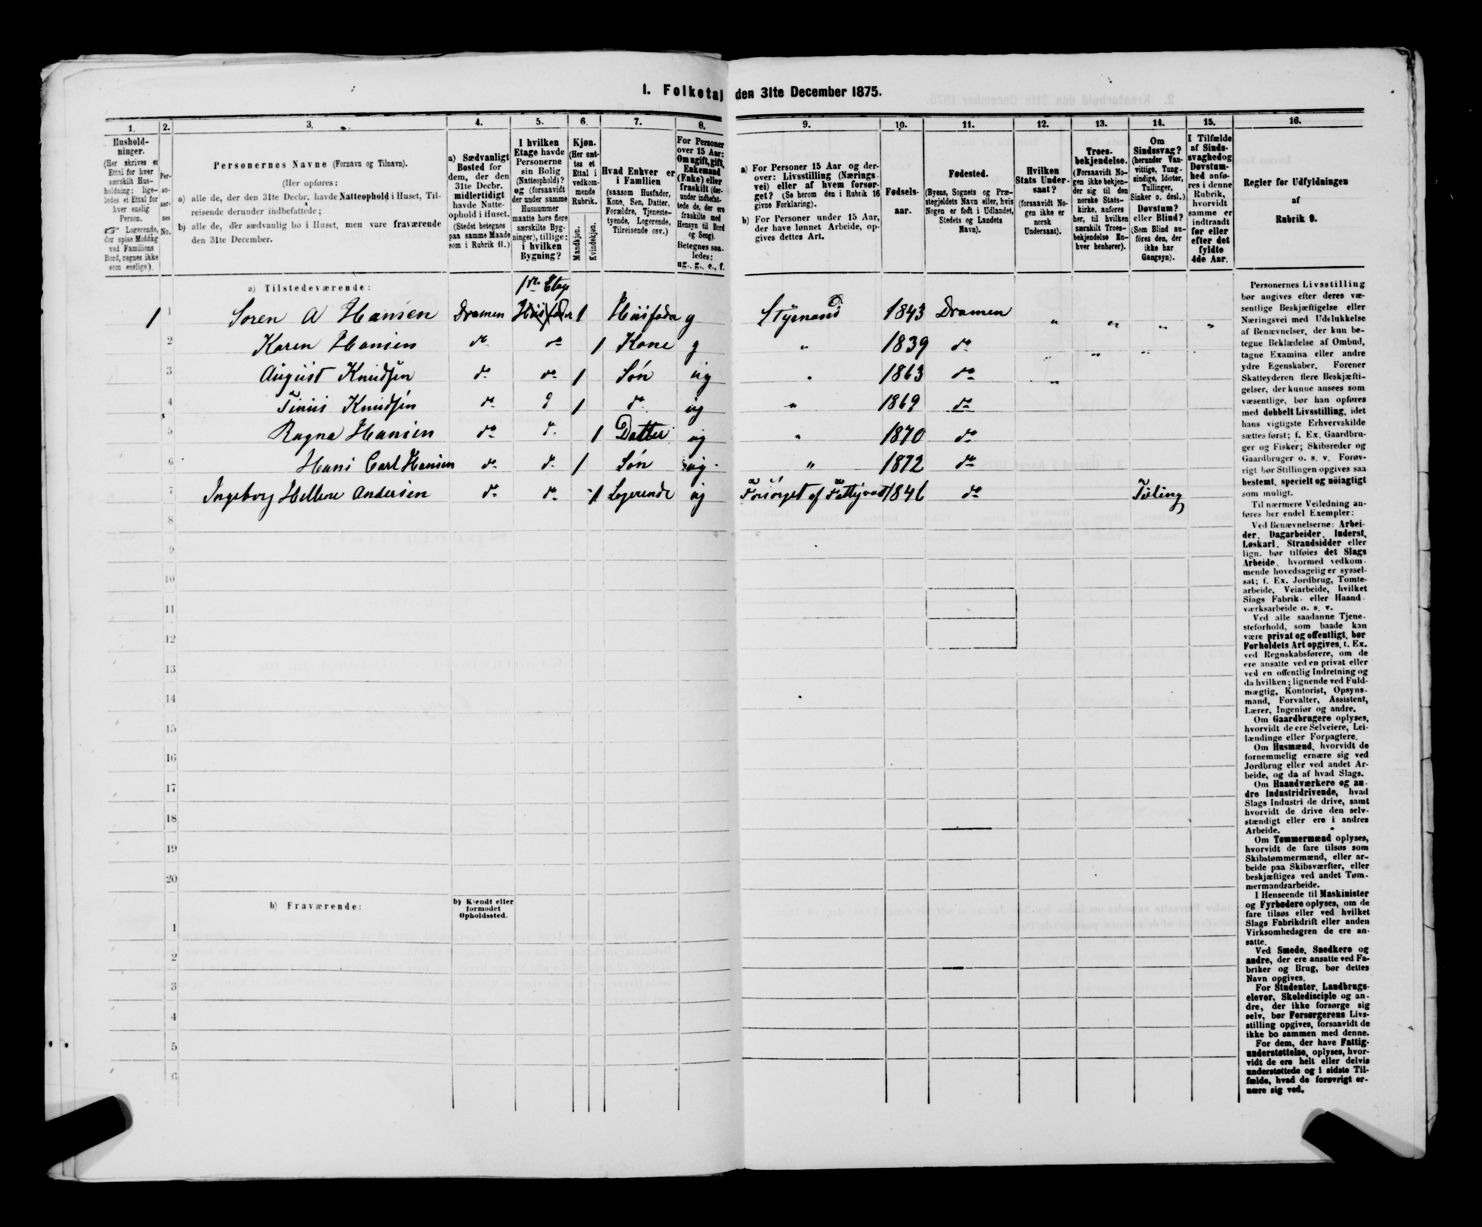 1. Folketal den 31te December 1875.
1. 2. 3. 4. 5. 6. 7. 8. 9. 10. 11. 12. 13. 14. 15. 16.
Hushold-
ninger.
(Her skrives et
Ettal for hver
særskilt Hus-
holdning; lige-
ledes et Ettal for
hver enslig
Person.
☞ Logerende,
der spise Middag
ved Familiens
Bord, regnes ikke
som enslige).
Per-
so-
ner-
nes
No.
Personernes Navne (Fornavn og Tilnavn).
(Her opføres:
a) alle de, der den 31te Decbr. havde Natteophold i Huset, Til-
reisende derunder indbefattede;
b) alle de, der sædvanlig bo i Huset, men vare fraværende
den 31te December.
a) Sædvanligt
Bosted for
dem, der den
31te Decbr.
midlertidigt
havde Natte-
ophold i Huset.
(Stedet betegnes
paa samme Maade
som i Rubrik 11.)
I hvilken
Etage havde
Personerne
sin Bolig
(Natteophold)?
og (forsaavidt
der under samme
Husnummer
maatte høre flere
særskilte Byg-
ninger), tillige:
i hvilken
Bygning?
Kjøn.
(Her sæt-
tes et
Ettal i
vedkom-
mende
Rubrik.
Mandkjøn.
Kvindekjøn.
Hvad Enhver er
i Familien
(saasom Husfader,
Kone, Søn, Datter,
Forældre, Tjeneste-
tyende, Logerende,
Tilreisende osv.)
For Personer
over 15 Aar:
Om ugift, gift,
Enkemand
(Enke) eller
fraskilt (der-
under indbefat-
tede de, der ere
fraskilte med
Hensyn til Bord
og Seng).
Betegnes saa-
ledes:
ug., g., e., f.
a) For Personer 15 Aar og der-
over: Livsstilling (Nærings-
vei) eller af hvem forsør-
get? (Se herom den i Rubrik 16
givne Forklaring).
b) For Personer under 15 Aar,
der have lønnet Arbeide, op-
gives dettes Art.
Fødsels-
aar.
Fødested.
(Byens, Sognets og Præ-
stegjeldets Navn eller, hvis
Nogen er født i Udlandet,
Stedets og Landets
Navn).
Hvilken
Stats Under-
saat?
(forsaavidt No-
gen ikke er
norsk
Undersaat).
Troes-
bekjendelse.
(Forsaavidt No-
gen ikke bekjen-
der sig til den
norske Stats-
kirke, anføres
her, til hvilken
særskilt Troes-
bekjendelse En-
hver henhører).
Om
Sindssvag?
(herunder Van-
vittige, Tung-
sindige, Idioter,
Tullinger,
Sinker o. desl.)
Døvstum?
eller Blind?
(Som Blind an-
føres den, der
ikke har
Gangsyn).
I Tilfælde
af Sinds-
svaghed og
Døvstum-
hed anfø-
res i denne
Rubrik,
hvorvidt
samme er
indtraadt
før eller
efter det
fyldte
4de Aar.
Regler for Udfyldningen
af
Rubrik 9.
a) Tilstedeværende:
1ste Etage
1 1 Soren A Hansen Dramen 1 Husfader g Styrmand 1843 Dramen " " " "
2 Karen Hansen do do 1 Kone g " 1839 do
3 August Knudsen do do 1 Søn ug " 1863 do
4 Tinius Knudsen do 1 do ug " 1869 do
5 Ragna Hansen do d. 1 Datter ug " 1870 do
6 Hans Carl Hansen do d. 1 Søn ug " 1872 do
7 Ingeborg Hellene Andersen do do 1 Logerende ug Forsørget af Fattigvæs 1846 do Tuling
8
9
10
11
12
13
14
15
16
17
18
19
20
b) Fraværende:
b) Kjendt eller
formodet
Opholdssted.
1
2
3
4
5
6
Personernes Livsstilling
bør angives efter deres væ-
sentlige Beskjæftigelse eller
Næringsvei med Udelukkelse
af Benævnelser, der kun be-
tegne Beklædelse af Ombud,
tagne Examina eller andre
ydre Egenskaber. Forener
Skatteyderen flere Beskjæfti-
gelser, der kunne ansees som
væsentlige, bør han opføres
med dobbelt Livsstilling, idet
hans vigtigste Erhvervskilde
sættes først; f. Ex. Gaardbru-
ger og Fisker; Skibsreder og
Gaardbruger o. s. v. Forøv-
rigt bør Stillingen opgives saa
bestemt, specielt og nøiagtigt
som muligt.
Til nærmere Veiledning an-
føres her endel Exempler:
Ved Benævnelserne: Arbei-
der, Dagarbeider, Inderst,
Løskarl, Strandsidder eller
lign. bør tilføies det Slags
Arbeide, hvormed vedkom-
mende hovedsagelig er syssel-
sat; f. Ex. Jordbrug, Tomte-
arbeide, Veiarbeide, hvilket
Slags Fabrik- eller Haand-
værksarbeide o. s. v.
Ved alle saadanne Tjene-
steforhold, som baade kan
være privat og offentligt, bør
Forholdets Art opgives, t. Ex.
ved Regnskabsførere, om de
ere ansatte ved en privat eller
ved en offentlig Indretning og
da hvilken; lignende ved Fuld-
mægtig, Kontorist, Opsyns-
mand, Forvalter, Assistent,
Lærer, Ingeniør og andre.
Om Gaardbrugere oplyses,
hvorvidt de ere Selveiere, Lei-
lændinge eller Forpagtere.
Om Husmænd, hvorvidt de
fornemmelig ernære sig ved
Jordbrug eller ved andet Ar-
beide, og da af hvad Slags.
Om Haandværkere og an-
dre Industridrivende, hvad
Slags Industri de drive, samt
hvorvidt de drive den selv-
stændigt eller ere i andres
Arbeide.
Om Tømmermænd oplyses,
hvorvidt de fare tilsøs som
Skibstømmermænd, eller ar-
beide paa Skibsværfter, eller
beskjæftiges ved andet Tøm-
mermandsarbeide.
I Henseende til Maskinister
og Fyrbødere oplyses, om de
fare tilsøs eller ved hvilket
Slags Fabrikdrift eller anden
Virksomhedsgren de ere an-
satte.
Ved Smede, Snedkere og
andre, der ere ansatte ved Fa-
briker og Brug, bør dettes
Navn opgives.
For Studenter, Landbrugs-
elever, Skoledisciple og an-
dre, der ikke forsørge sig
selv, bør Forsørgerens Livs-
stilling opgives, forsaavidt de
ikke bo sammen med denne.
For dem, der have Fattig-
understøttelse, oplyses, hvor-
vidt de ere helt eller delvis
understøttede og i sidste Til-
fælde, hvad de forøvrigt er-
nære sig ved.